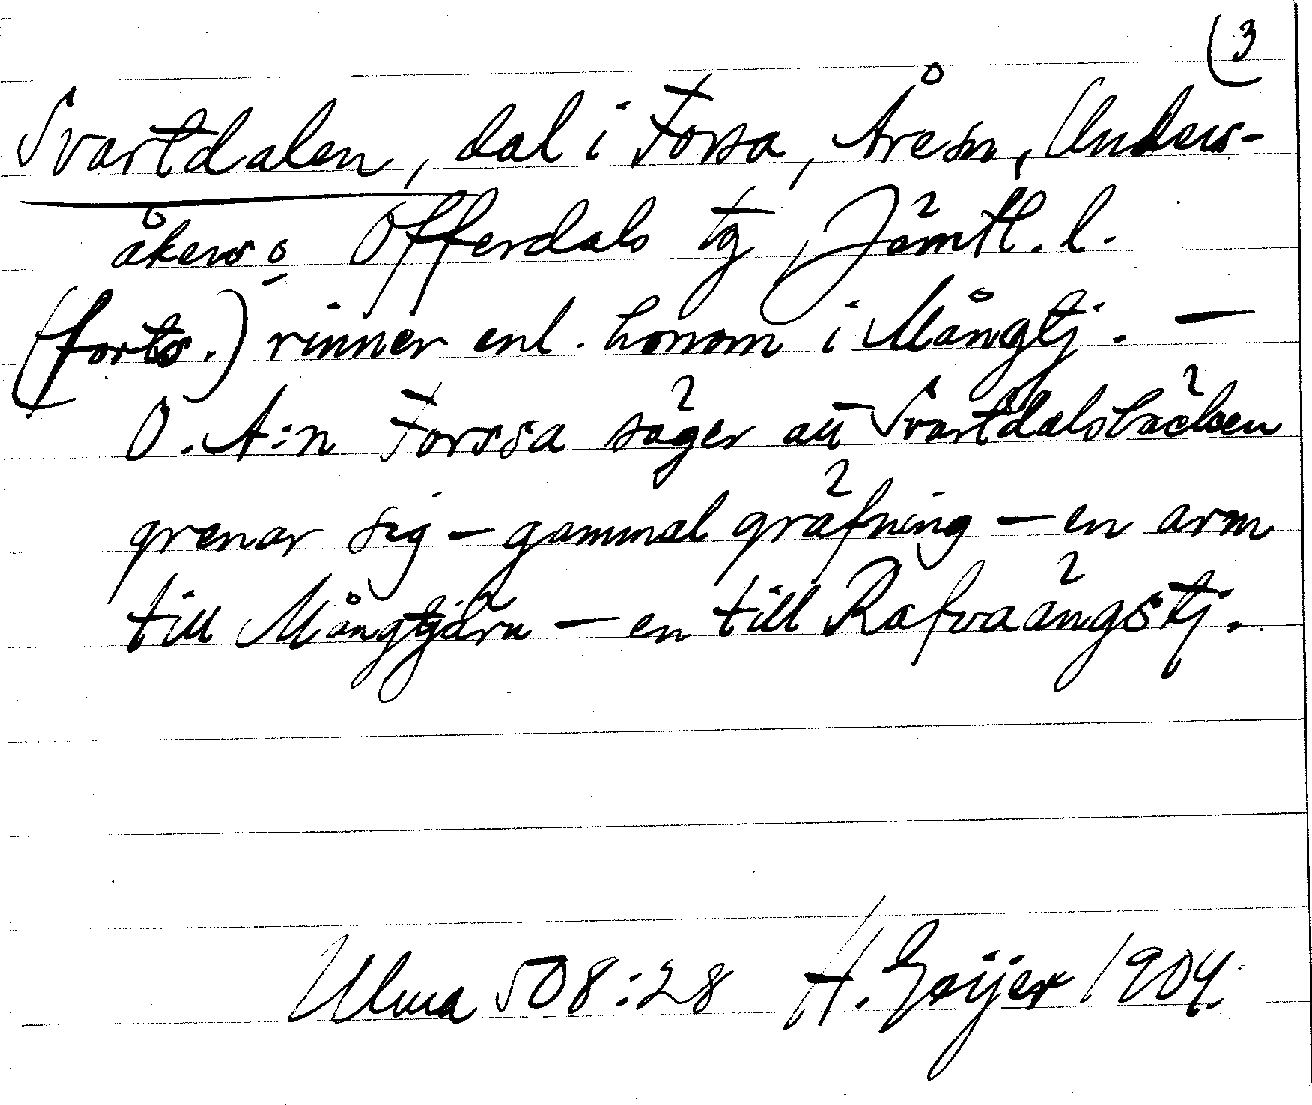 (3
Svartdalen, dal i Forsa, Åre sn, Unders-
åkers o Offerdals tg Jämtl. l.
(forts.) rinner enl. honom i Mångtj. —
O. A:n Forssa säger att Svartdalsbäcken
grenar sig — gammal gräfning — en arm
till Mångtjärn — en till Rafvaängstj.
Ulma 508:28 H. Geijer 1904.